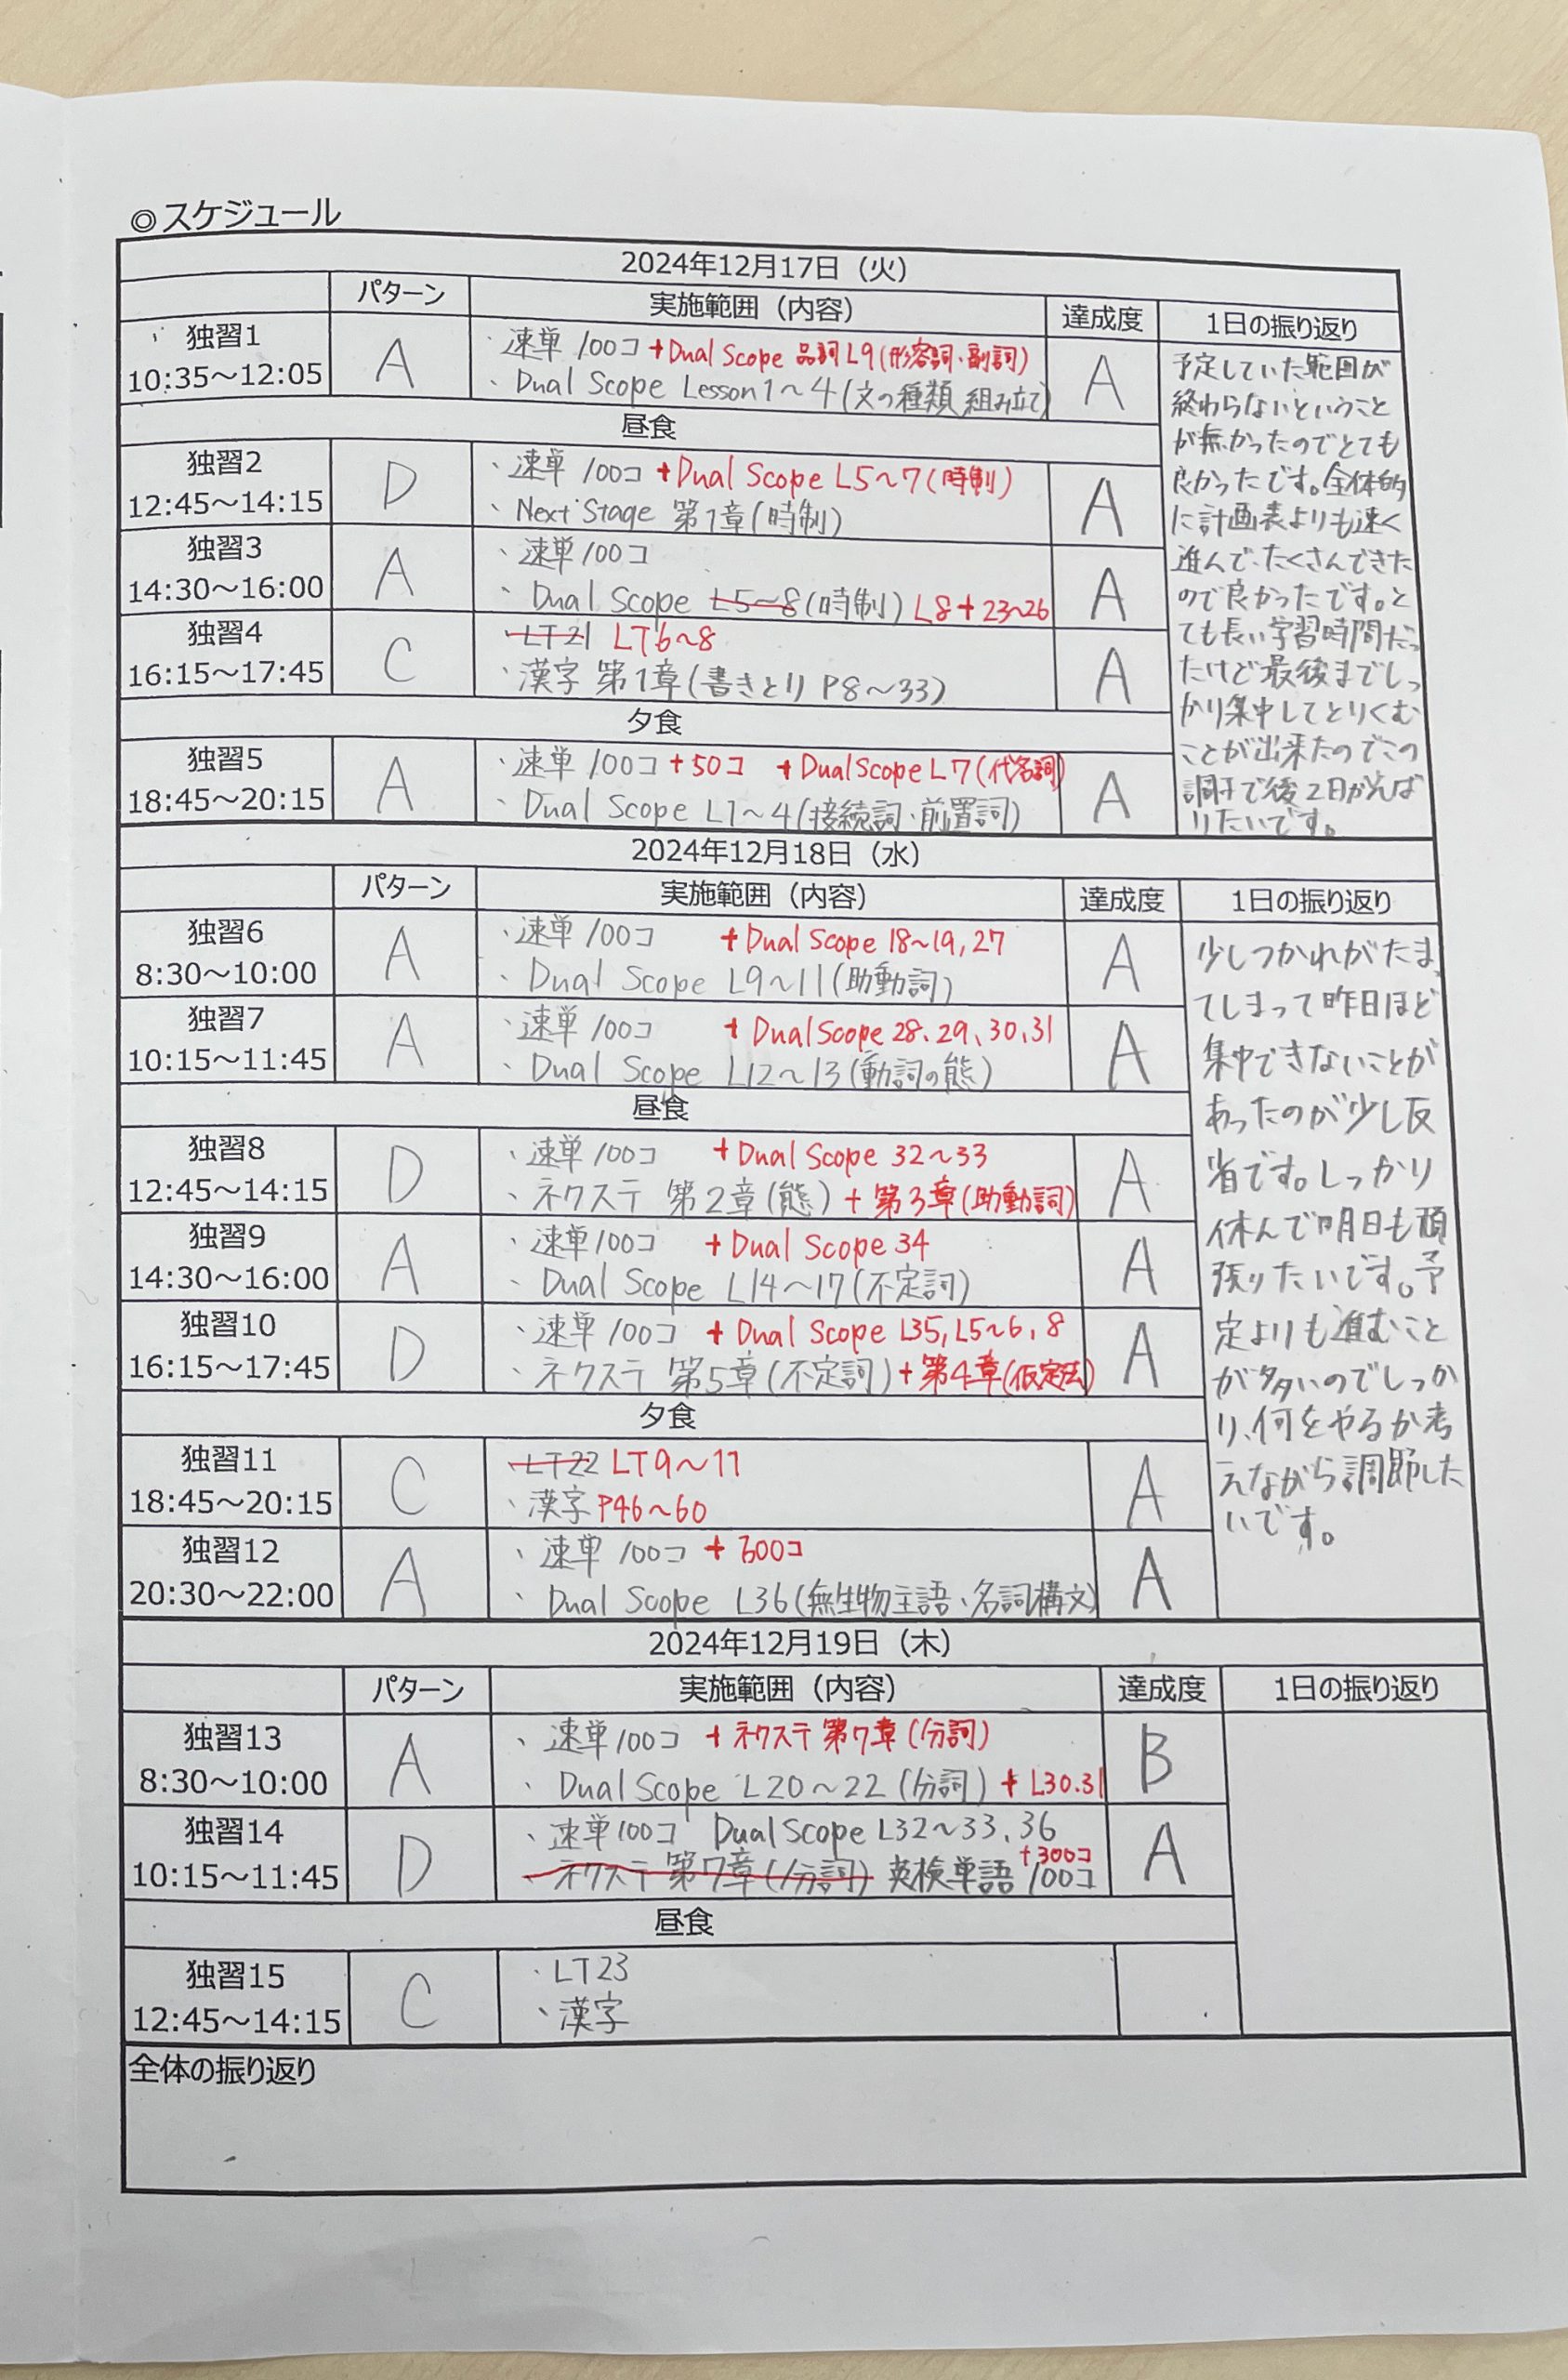 ◎スケジュール
2024年12月17日（火）
パターン 実施範囲（内容） 達成度 1日の振り返り
独習1
10:35～12:05
A
・速単 100コ +Dual Scope 品詞 L9(形容詞・副詞)
・Dual Scope Lesson1～4(文の種類 組み立て)
A
昼食
独習2
12:45～14:15
D
・速単 100コ +Dual Scope L5～7(時制)
・Next Stage 第1章(時制)
A
独習3
14:30～16:00
A
・速単100コ
・Dual Scope L5～8(時制) L8+23～26
A
独習4
16:15～17:45
C
・LT21 LT6～8
・漢字 第1章(書きとり P8～33)
A
夕食
独習5
18:45～20:15
A
・速単 100コ+50コ +Dual Scope L7(代名詞)
・Dual Scope L1～4(接続詞・前置詞)
A
予定していた範囲が
終わらないということ
が無かったのでとても
良かったです。全体的
に計画表よりも速く
進んで、たくさんできた
ので良かったです。と
ても長い学習時間だっ
たけど最後までしっ
かり集中してとりくむ
ことが出来たのでこの
調子で後2日がんば
りたいです。
2024年12月18日（水）
パターン 実施範囲（内容） 達成度 1日の振り返り
独習6
8:30～10:00
A
・速単 100コ +Dual Scope 18～19,27
・Dual Scope L9～11(助動詞)
A
独習7
10:15～11:45
A
・速単 100コ + Dual Scope 28、29、30、31
・Dual Scope L12～13(動詞の態)
A
昼食
独習8
12:45～14:15
D
・速単 100コ +Dual Scope 32～33
・ネクステ 第2章(態)+第3章(助動詞)
A
独習9
14:30～16:00
A
・速単100コ +Dual Scope 34
・Dual Scope L14～17(不定詞)
A
独習10
16:15～17:45
D
・速単 100コ + Dual Scope L35,L5～6,8
・ネクステ 第5章(不定詞)+第4章(仮定法)
A
夕食
独習11
18:45～20:15
C
・LT22 LT9～11
・漢字P46～60
A
独習12
20:30～22:00
A
・速単 100コ + 300コ
・Dual Scope L36(無生物主語、名詞構文)
A
少しつかれがたまっ
てしまって昨日ほど
集中できないことが
あったのが少し反
省です。しっかり
休んで明日も頑
張りたいです。予
定よりも進むこと
が多いのでしっか
り、何をやるか考
えながら調節した
いです。
2024年12月19日（木）
パターン 実施範囲（内容） 達成度 1日の振り返り
独習13
8:30～10:00
A
・速単100コ +ネクステ 第7章(分詞)
・Dual Scope L20～22(分詞) + L30.31
B
独習14
10:15～11:45
D
・速単100コ Dual Scope L32～33、36
・ネクステ 第7章(分詞) 英検単語 100コ +300コ
A
昼食
独習15
12:45～14:15
C
・LT23
・漢字
全体の振り返り